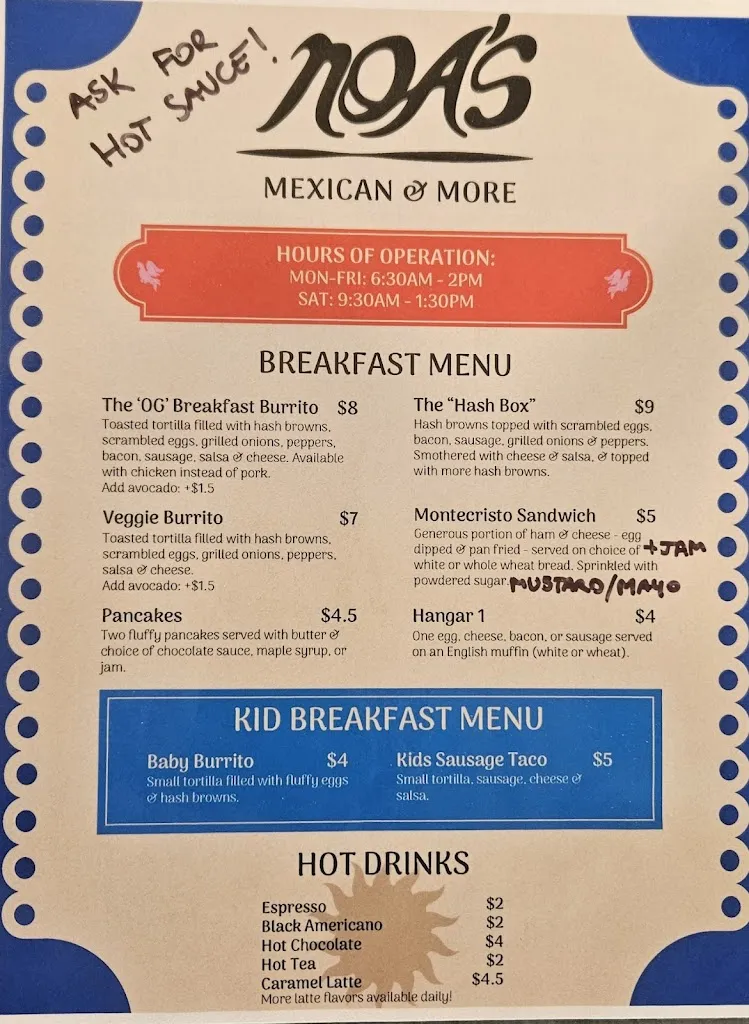 ASK FOR
HOT SAUCE!
NOA'S
MEXICAN & MORE
HOURS OF OPERATION:
MON-FRI: 6:30AM - 2PM
SAT: 9:30AM - 1:30PM
BREAKFAST MENU
The 'OG' Breakfast Burrito $8
Toasted tortilla filled with hash browns,
scrambled eggs, grilled onions, peppers,
bacon, sausage, salsa & cheese. Available
with chicken instead of pork.
Add avocado: +$1.5
The "Hash Box" $9
Hash browns topped with scrambled eggs,
bacon, sausage, grilled onions & peppers.
Smothered with cheese & salsa, & topped
with more hash browns.
Veggie Burrito $7
Toasted tortilla filled with hash browns,
scrambled eggs, grilled onions, peppers,
salsa & cheese.
Add avocado: +$1.5
Montecristo Sandwich $5
Generous portion of ham & cheese - egg
dipped & pan fried - served on choice of +JAM
white or whole wheat bread. Sprinkled with
powdered sugar. MUSTARD/MAYO
Pancakes $4.5
Two fluffy pancakes served with butter &
choice of chocolate sauce, maple syrup, or
jam.
Hangar 1 $4
One egg, cheese, bacon, or sausage served
on an English muffin (white or wheat).
KID BREAKFAST MENU
Baby Burrito $4
Small tortilla filled with fluffy eggs
& hash browns.
Kids Sausage Taco $5
Small tortilla, sausage, cheese &
salsa.
HOT DRINKS
Espresso $2
Black Americano $2
Hot Chocolate $4
Hot Tea $2
Caramel Latte $4.5
More latte flavors available daily!